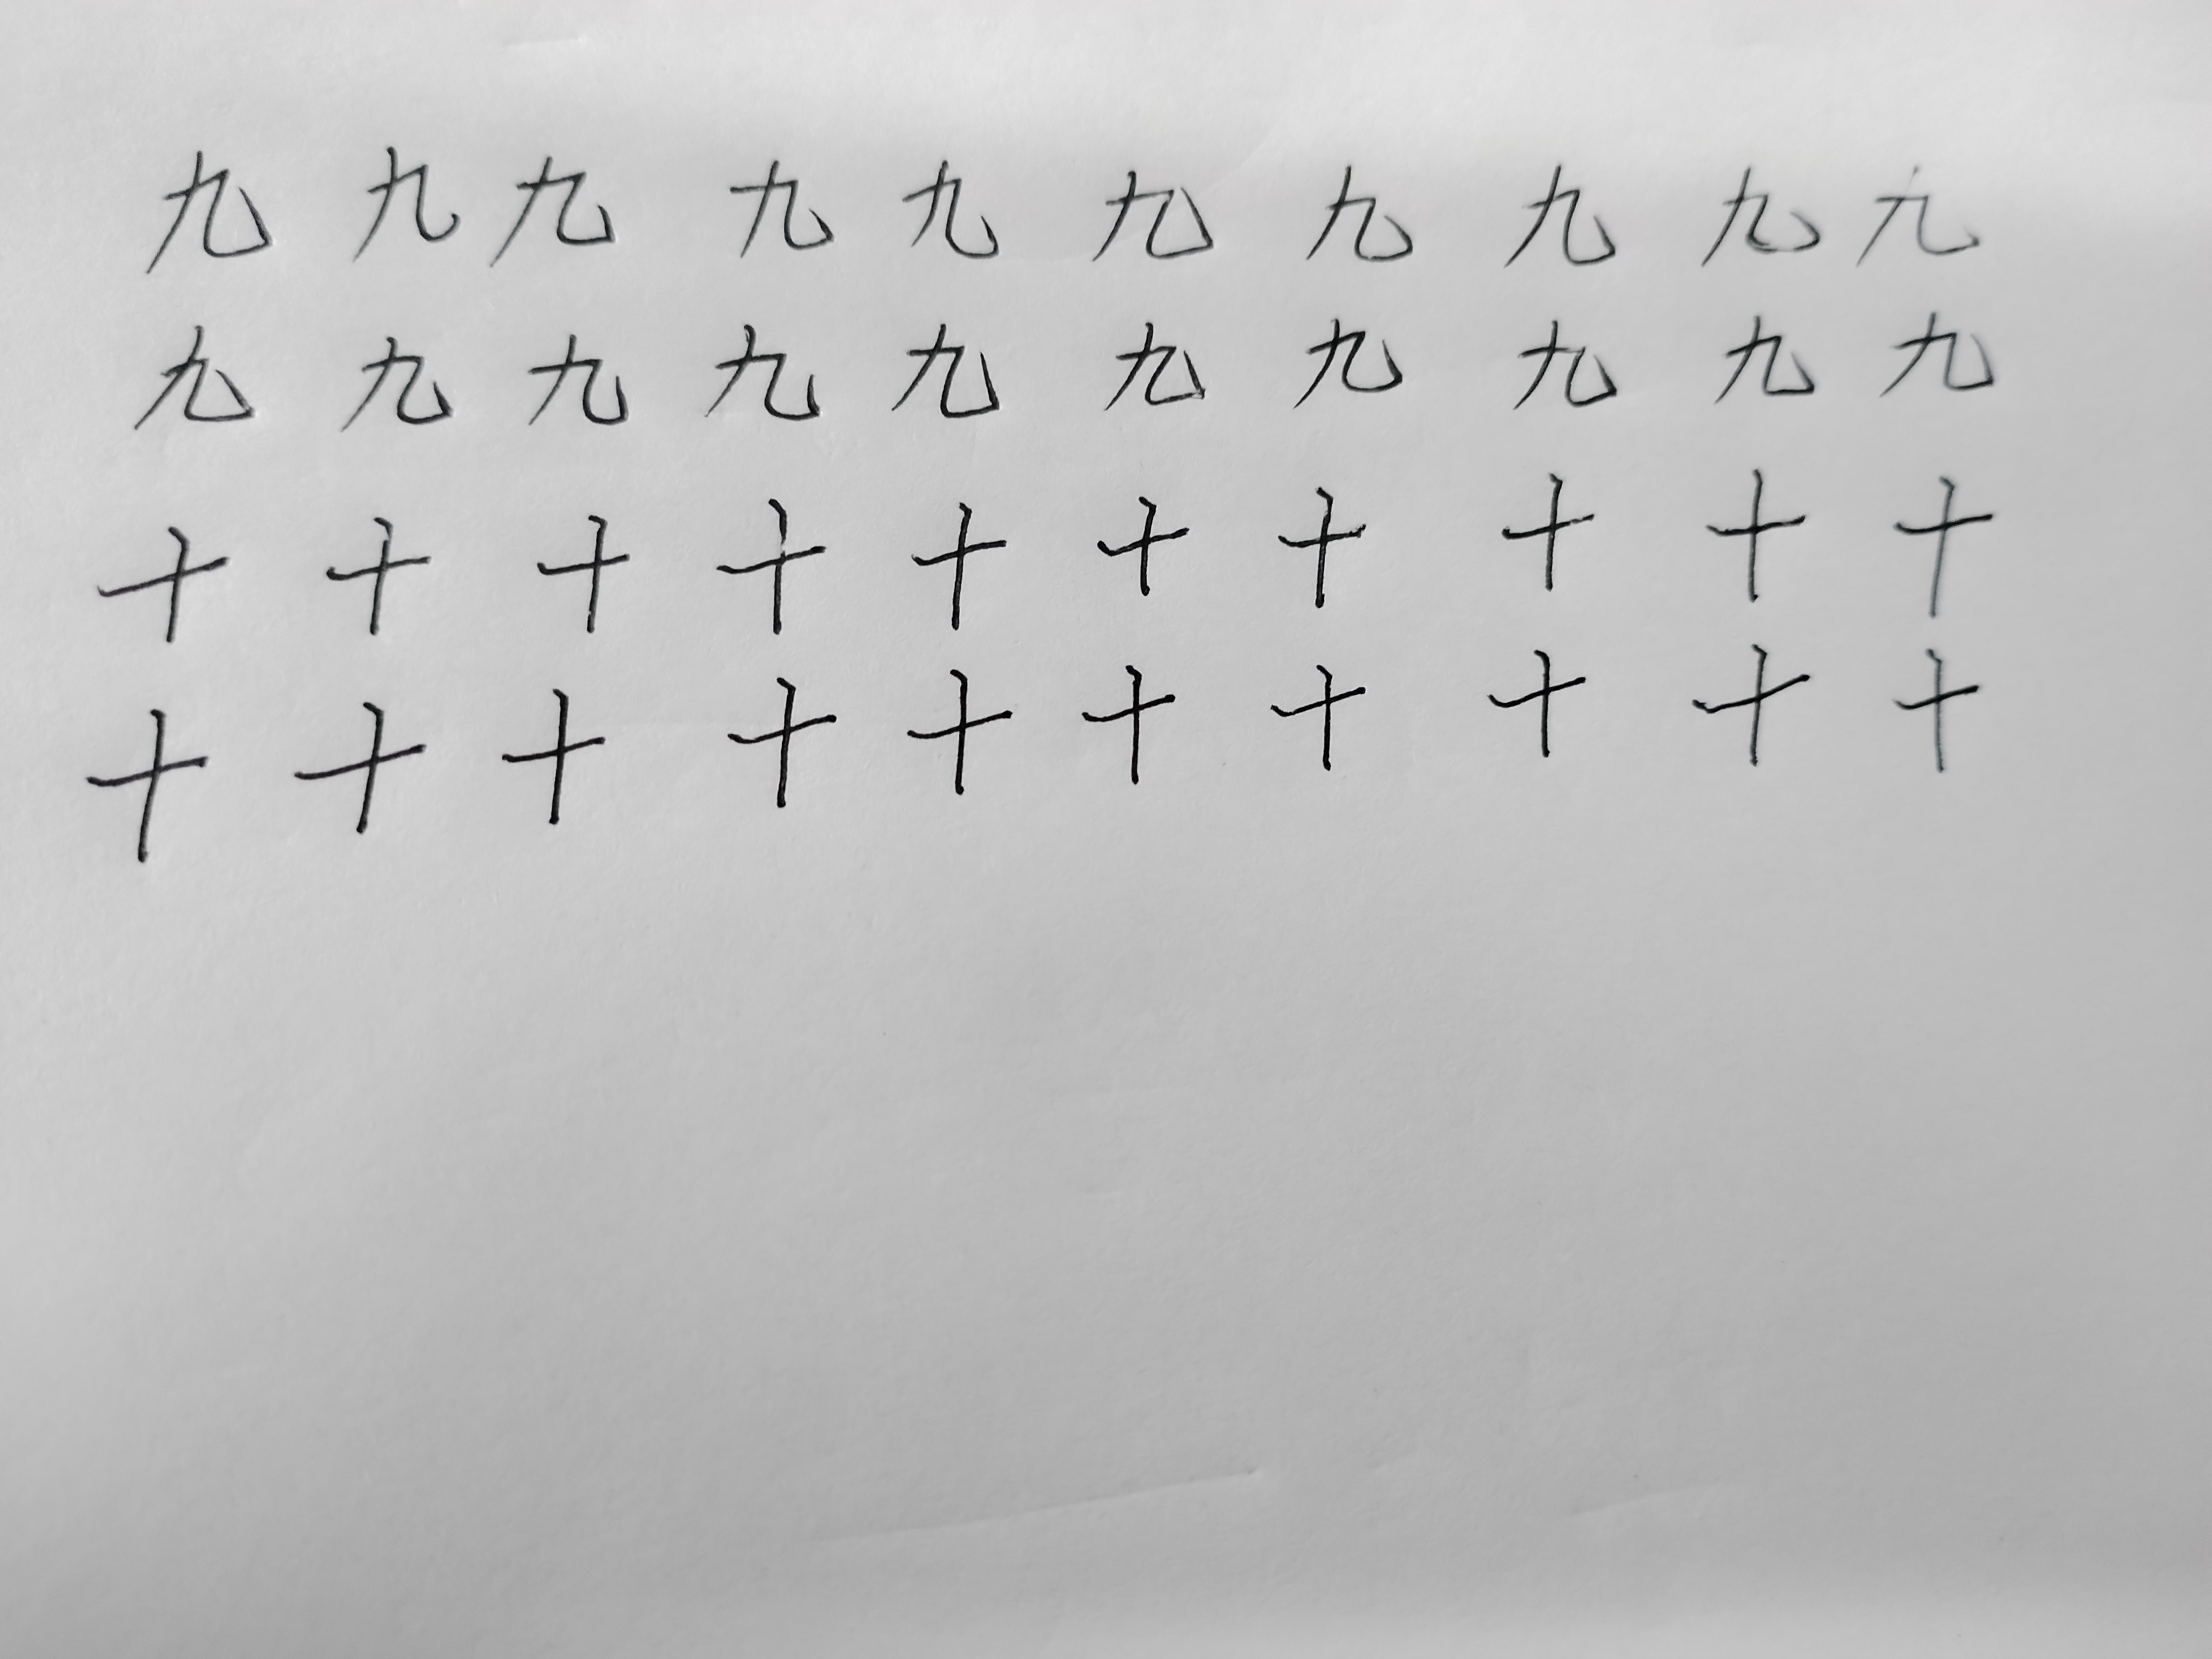 九 九 九 九 九 九 九 九 九 九
九 九 九 九 九 九 九 九 九 九
十 十 十 十 十 十 十 十 十 十
十 十 十 十 十 十 十 十 十 十